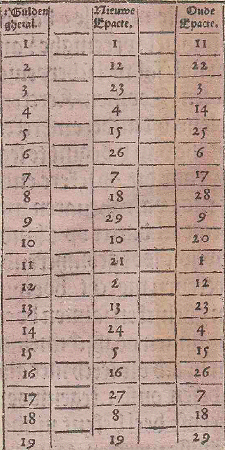 t'Gulden Nieuwe Oude
ghetal. Epacte. Epacte.
1 1 11
2 12 22
3 23 3
4 4 14
5 15 25
6 26 6
7 7 17
8 18 28
9 29 9
10 10 20
11 21 1
12 2 12
13 13 23
14 24 4
15 5 15
16 16 26
17 27 7
18 8 18
19 19 29